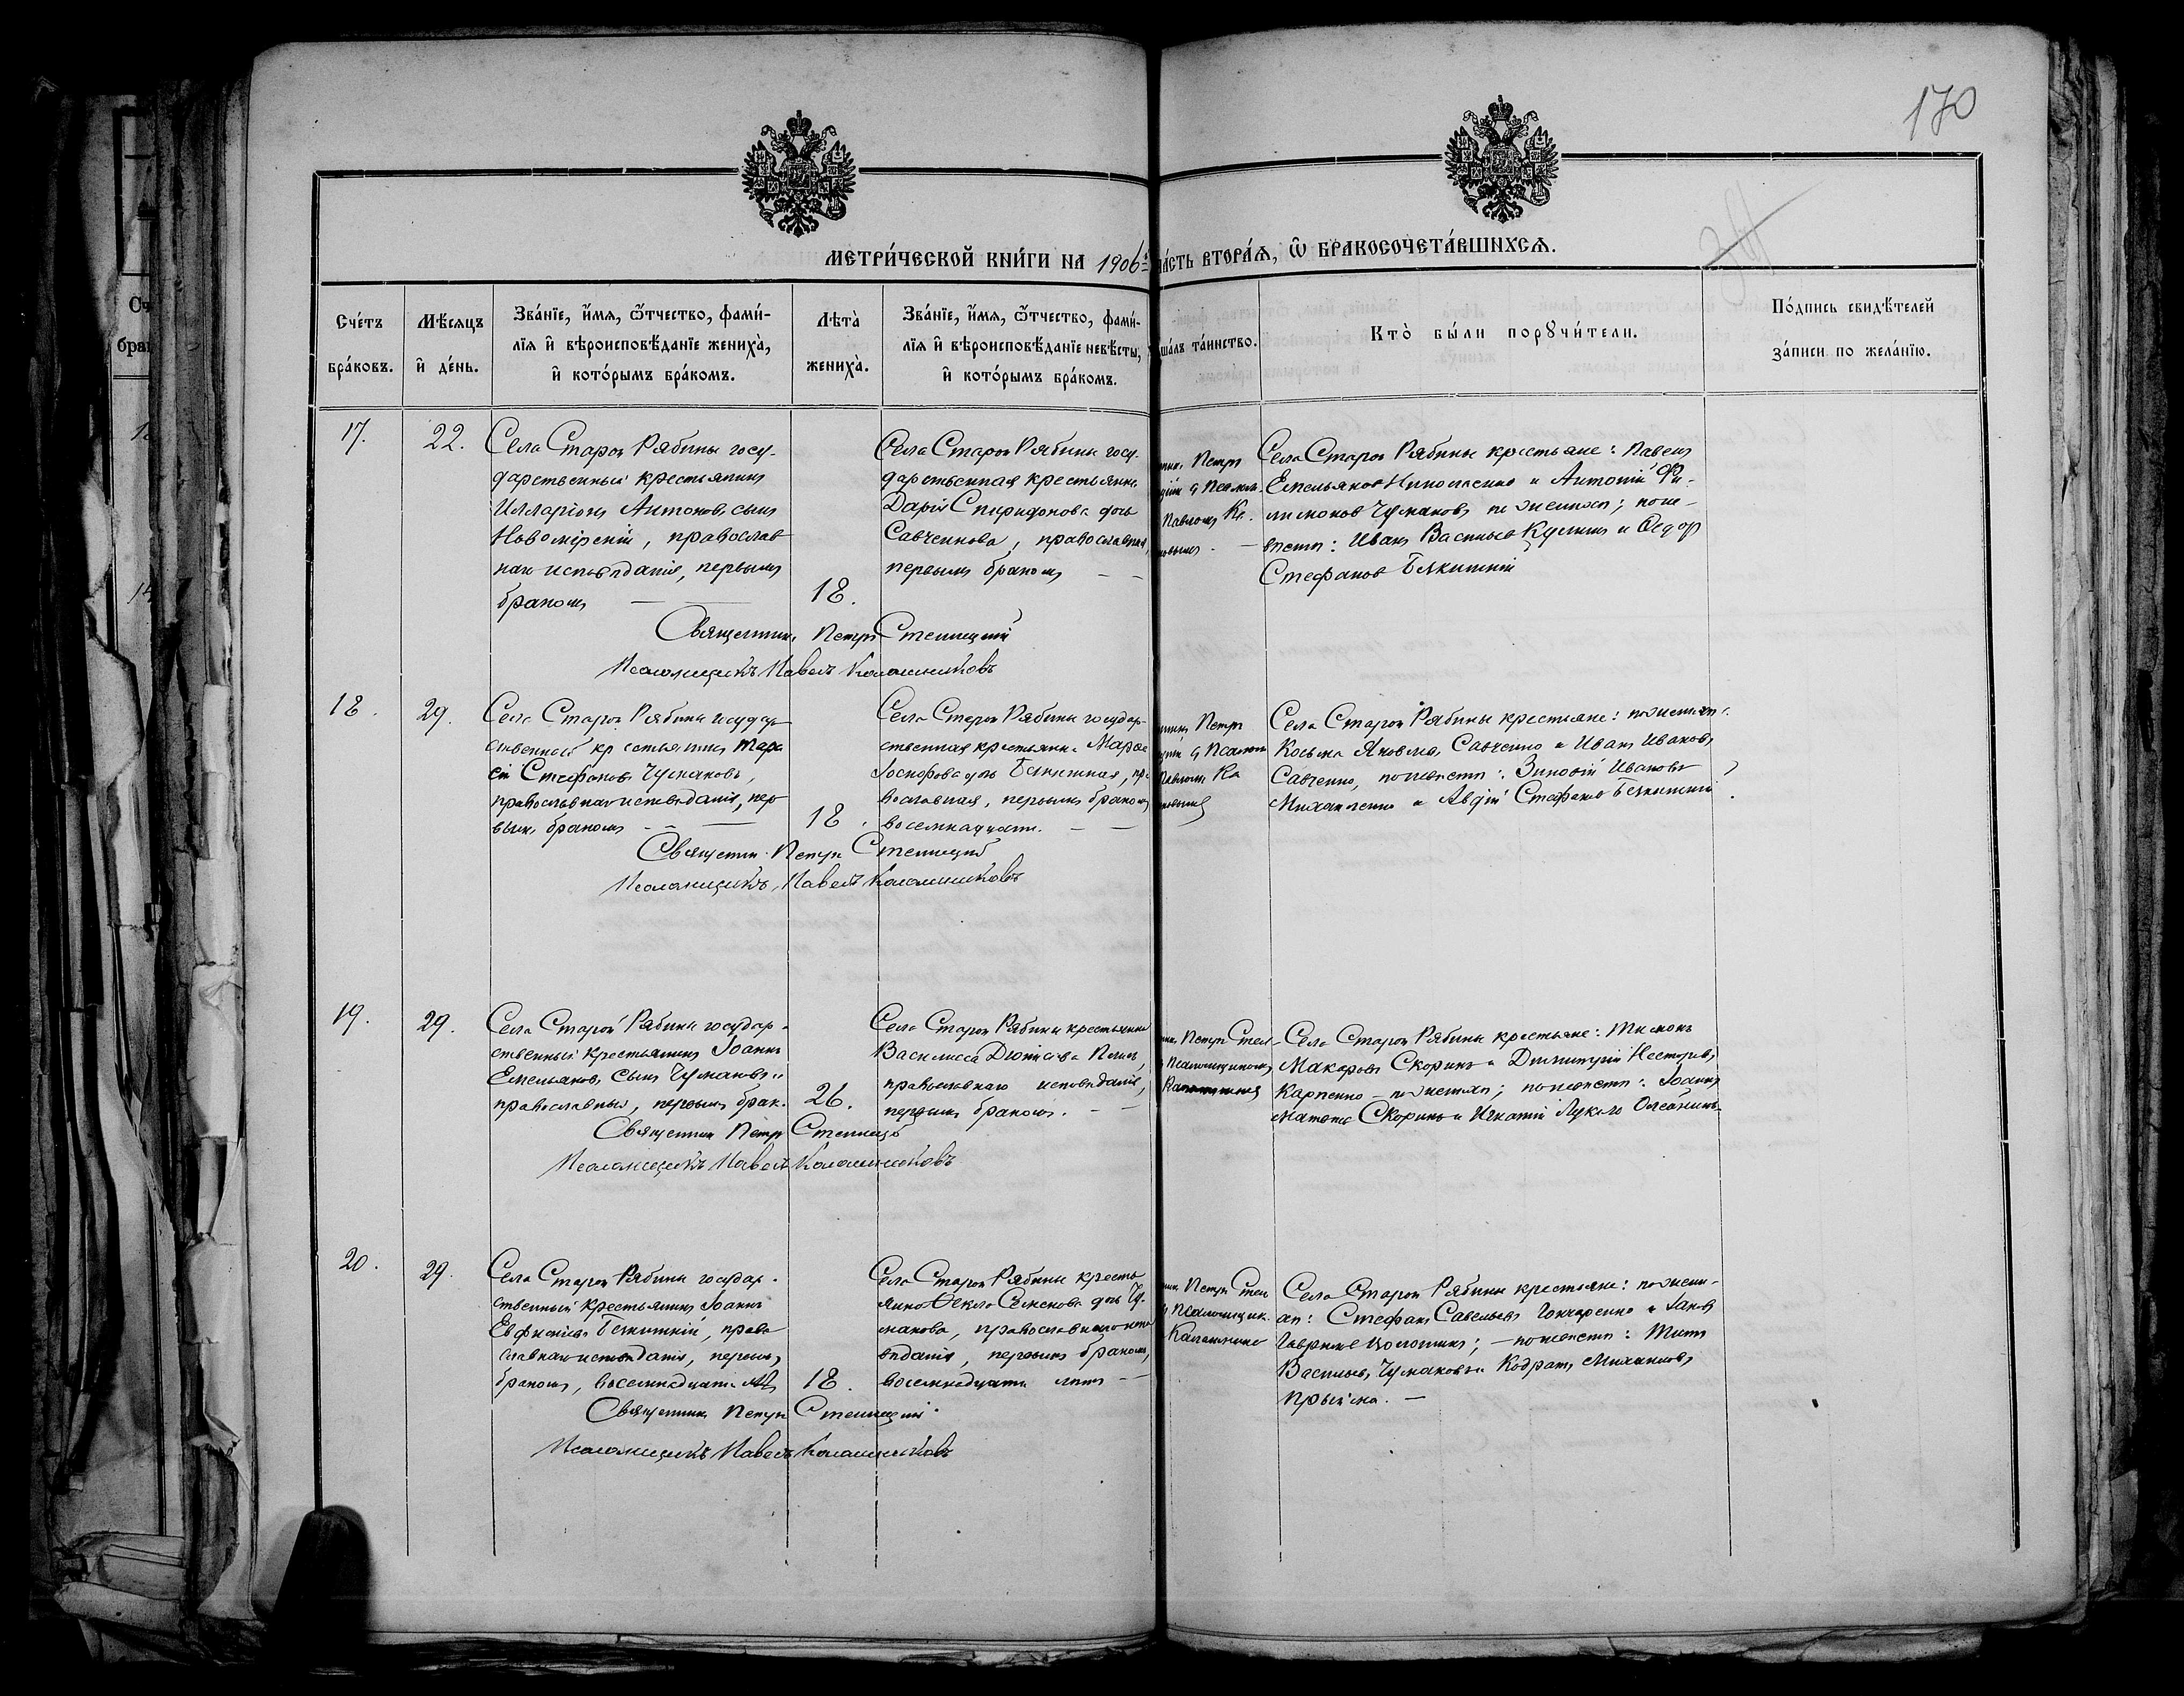 170
МЕТРИ́ЧЕСКОЙ КНИ́ГИ НА 1906
ЧА́СТЬ ВТОРА́Я, Ѡ БРАКОСОЧЕТА́ВШИХСѦ.
Сче́тъ бра́ковъ.
Мѣ́сѧцъ и де́нь.
Зва́нїе, и҆́мѧ, ѻ҆́тчество, фами́-
лїѧ и҆ вѣроисповѣ́данїе жениха̀,
и҆ кото́рымъ бра́комъ.
Лѣта̀ жениха̀.
Зва́нїе, и҆́мѧ, ѻ҆́тчество, фами́-
лїѧ и҆ вѣроисповѣ́данїе невѣ́сты,
и҆ кото́рымъ бра́комъ.
та́инство.
Кто̀ бы́ли порꙋчи́тели.
По́дпись свидѣ́телей
за́писи по жела́нїю.
17.
22.
Села Старой Рябины госу-
дарственный крестьянинъ
Илларіонъ Антоновъ сынъ
Новомірскій, православ
наго исповѣданія, первымъ
бракомъ
18.
Села Старой Рябины госу-
дарственная крестьянка
Дарія Спиридонова дочь
Савченкова, православная,
первымъ бракомъ
Петръ
Павломъ Ка
Села Старой Рябины крестьяне: Павелъ
Емельяновъ и Антоній Фи-
лимоновъ Чумаковъ по женихѣ; по не-
вѣстѣ: Иванъ Васильевъ Кулишъ и Ѳедоръ
Стефановъ
Священникъ Петръ
Псаломщикъ Павелъ Калашниковъ
18.
29.
Села Старой Рябины государ
ственный крестьянинъ Тара
сій Стефановъ Чумаковъ,
православнаго исповѣданія, пер
вымъ бракомъ
18.
Села Старой Рябины государ-
ственная крестьянка
дочь пра
вославная, первымъ бракомъ
восемнадцати.
Петръ
Павломъ Ка
Села Старой Рябины крестьяне: по женихѣ:
Косьма Яковлевъ Савченко и Иванъ Ивановъ
Савченко, по невѣстѣ: Зиновій Ивановъ
Михайленко и Авдій Стефановъ
Священник Петръ
Псаломщикъ Павелъ Калашниковъ
19.
29.
Села Старой Рябины государ-
ственный крестьянинъ Іоаннъ
Емельяновъ сынъ Чумаковъ
православный, первымъ брак.
26.
Села Старой Рябины крестьянка
Василисса
православнаго исповѣданія,
первымъ бракомъ.
Петръ
Псаломщикомъ
Села Старой Рябины крестьяне: Тимонъ
Макаровъ Скоринъ и Димитрій Несторовъ
Карпенко по женихѣ; по невѣстѣ: Іоаннъ
Скоринъ и Игнатій
Священник Петръ
Псаломщикъ Павелъ Калашниковъ
20.
29.
Села Старой Рябины государ-
ственный крестьянинъ Іоаннъ
православнаго исповѣданія, первымъ
бракомъ, восемнадцати лѣтъ
18.
Села Старой Рябины кресть
янка Ѳекла Семенова дочь Чу-
макова, православнаго испо
вѣданія, первымъ бракомъ,
восемнадцати лѣтъ
Петръ
Псаломщик.
Села Старой Рябины крестьяне: по жени-
хѣ: Стефанъ Савельевъ Гончаренко и Іаковъ
по невѣстѣ: Титъ
Васильевъ Чумаковъ и Кодратъ Михайловъ
Прыйма.
Священникъ Петръ
Псаломщикъ Павелъ Калашниковъ